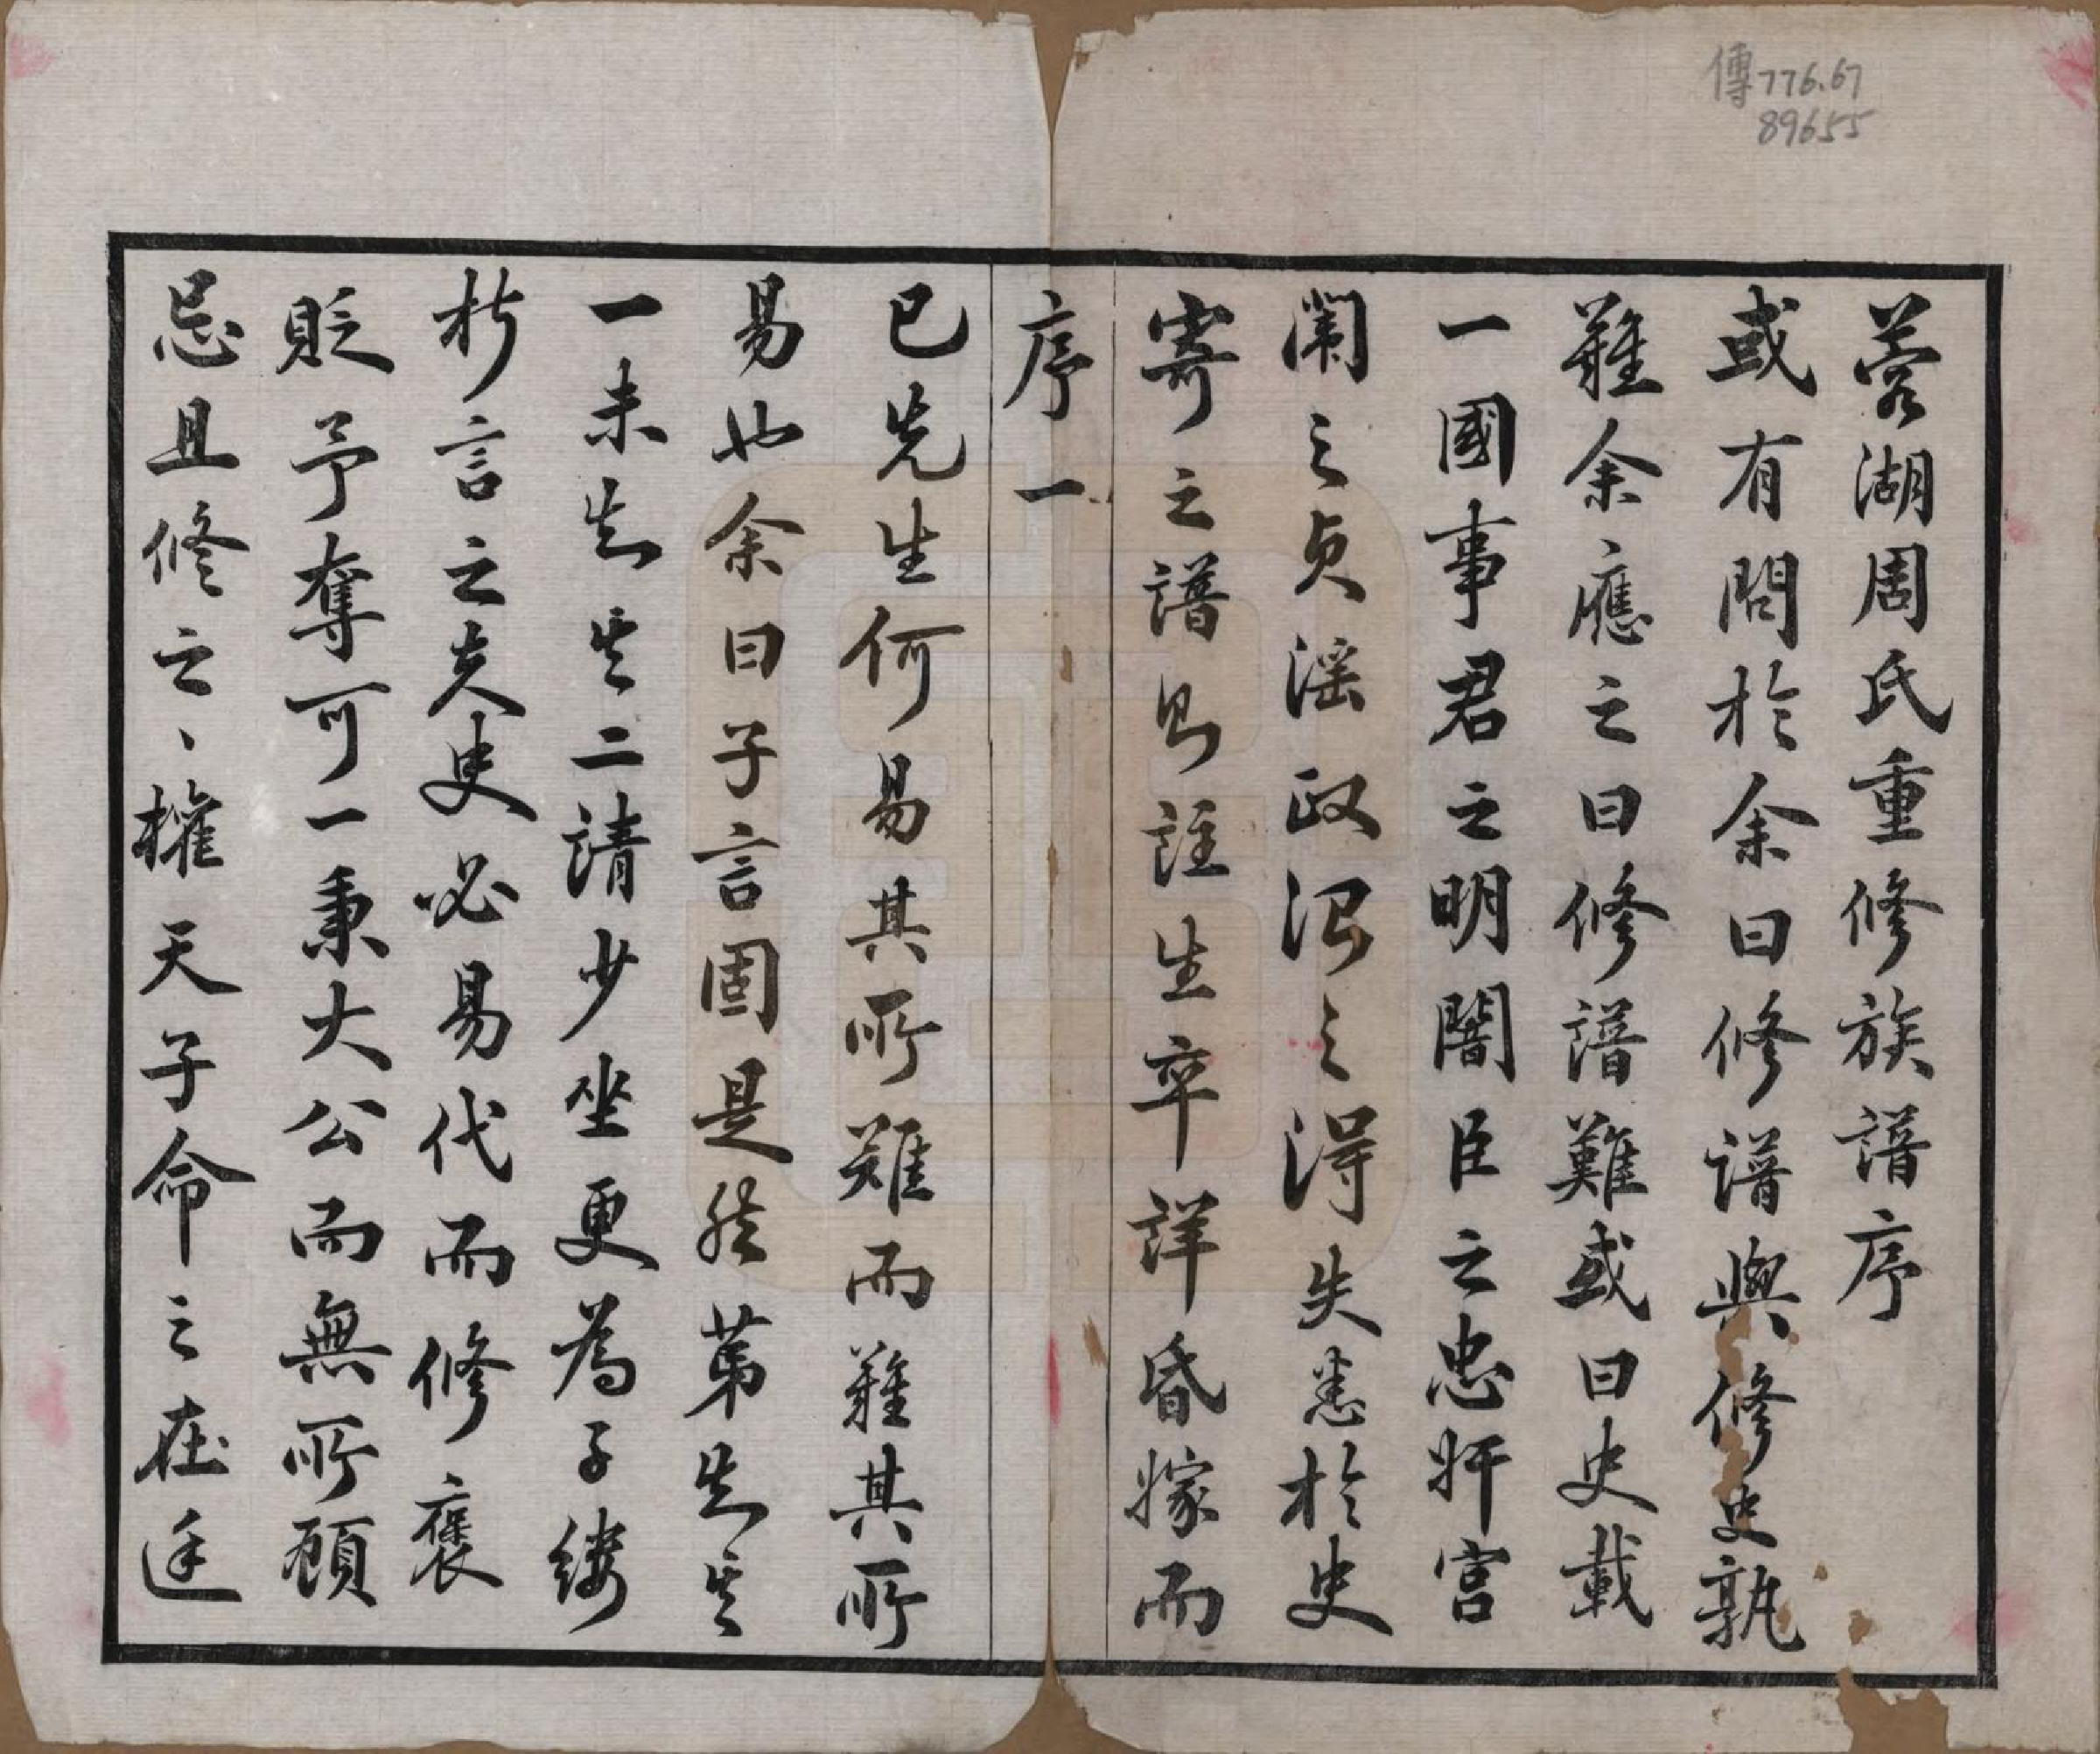 傳776.67
89655
蓉湖周氏重修族譜序
或有問於余曰修譜與修史孰
難余應之曰修譜難或曰史載
一國事君之明闇臣之忠奸宮
闈之貞淫政治之得失悉於史
寄之譜則註生卒詳昏嫁而
序一
已先生何易其所難而難其所
易也余曰子言固是然第知其
一未知其二請少坐更為子縷
析言之夫史必易代而修褒
貶予奪可一秉大公而無所顧
忌且修之、權天子命之在廷